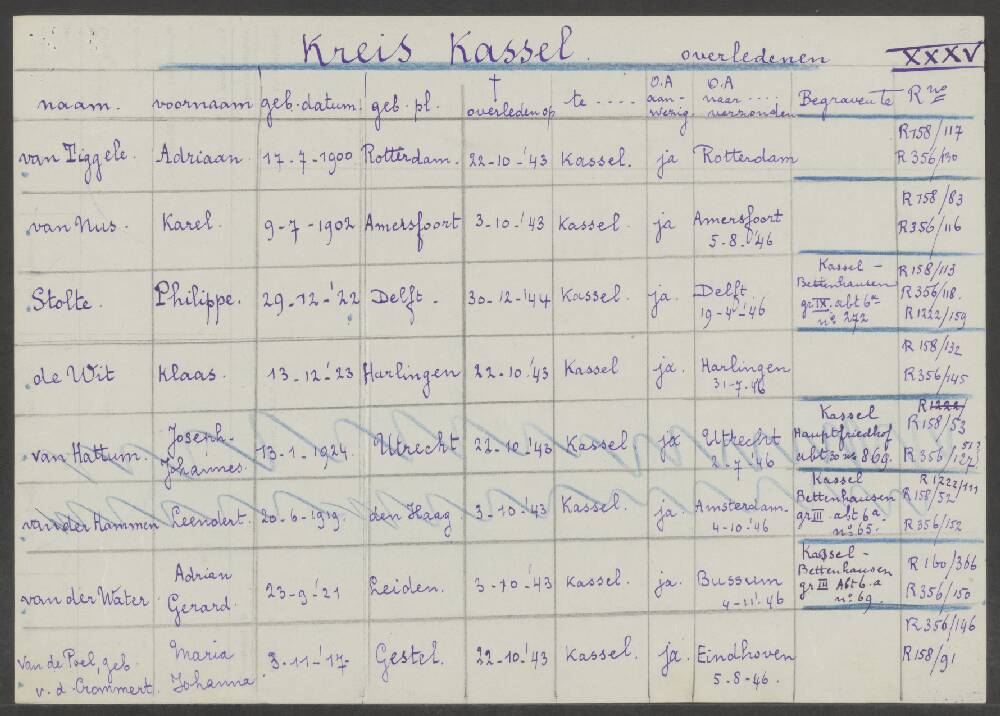 Kreis Kassel. overledenen XXXV
naam. voornaam geb. datum geb. pl. † overleden op te .... O.A aanwezig O.A naar .... verzonden Begraven te R no
van Tiggele. Adriaan. 17-7-1900 Rotterdam. 22-10-'43 Kassel. ja Rotterdam R158/117
R356/130
van Nus. Karel. 9-7-1902 Amersfoort 3-10-'43 Kassel. ja Amersfoort R158/83
5-8-'46 R356/116
Stolte. Philippe. 29-12-'22 Delft. 30-12-'44 Kassel. ja. Delft Kassel - R158/113
19-4-'46 Bettenhausen R356/118.
gr IX. abt 6a- R1222/159
no 272
de Wit Klaas. 13-12-'23 Harlingen 22-10-'43 Kassel ja. Harlingen R158/132
31-7-'46 R356/145
van Hattum. Joseph- 13-1-1924. Utrecht 22-10-'43 Kassel ja Utrecht Kassel R1222/
Johannes. 2-7-'46 Hauptfriedhof R158/53
abt 30 no 869. R356/127
van der Hammen Leendert. 20-6-1919. den Haag 3-10-'43 Kassel. ja Amsterdam. Kassel R1222/111
4-10-'46 Bettenhausen R158/52
gr III abt 6a- R356/152
no 65.
van der Water Adrian 23-9-'21 Leiden. 3-10-'43 Kassel. ja. Bussum Kassel - R160/366
Gerard. 4-11-'46 Bettenhausen R356/150
gr III Abt 6.a
no 69.
van de Poel, geb. Maria 3-11-'17. Gestel. 22-10-'43 Kassel. ja. Eindhoven R356/146
v. d. Crommert. Johanna 5-8-46. R158/91